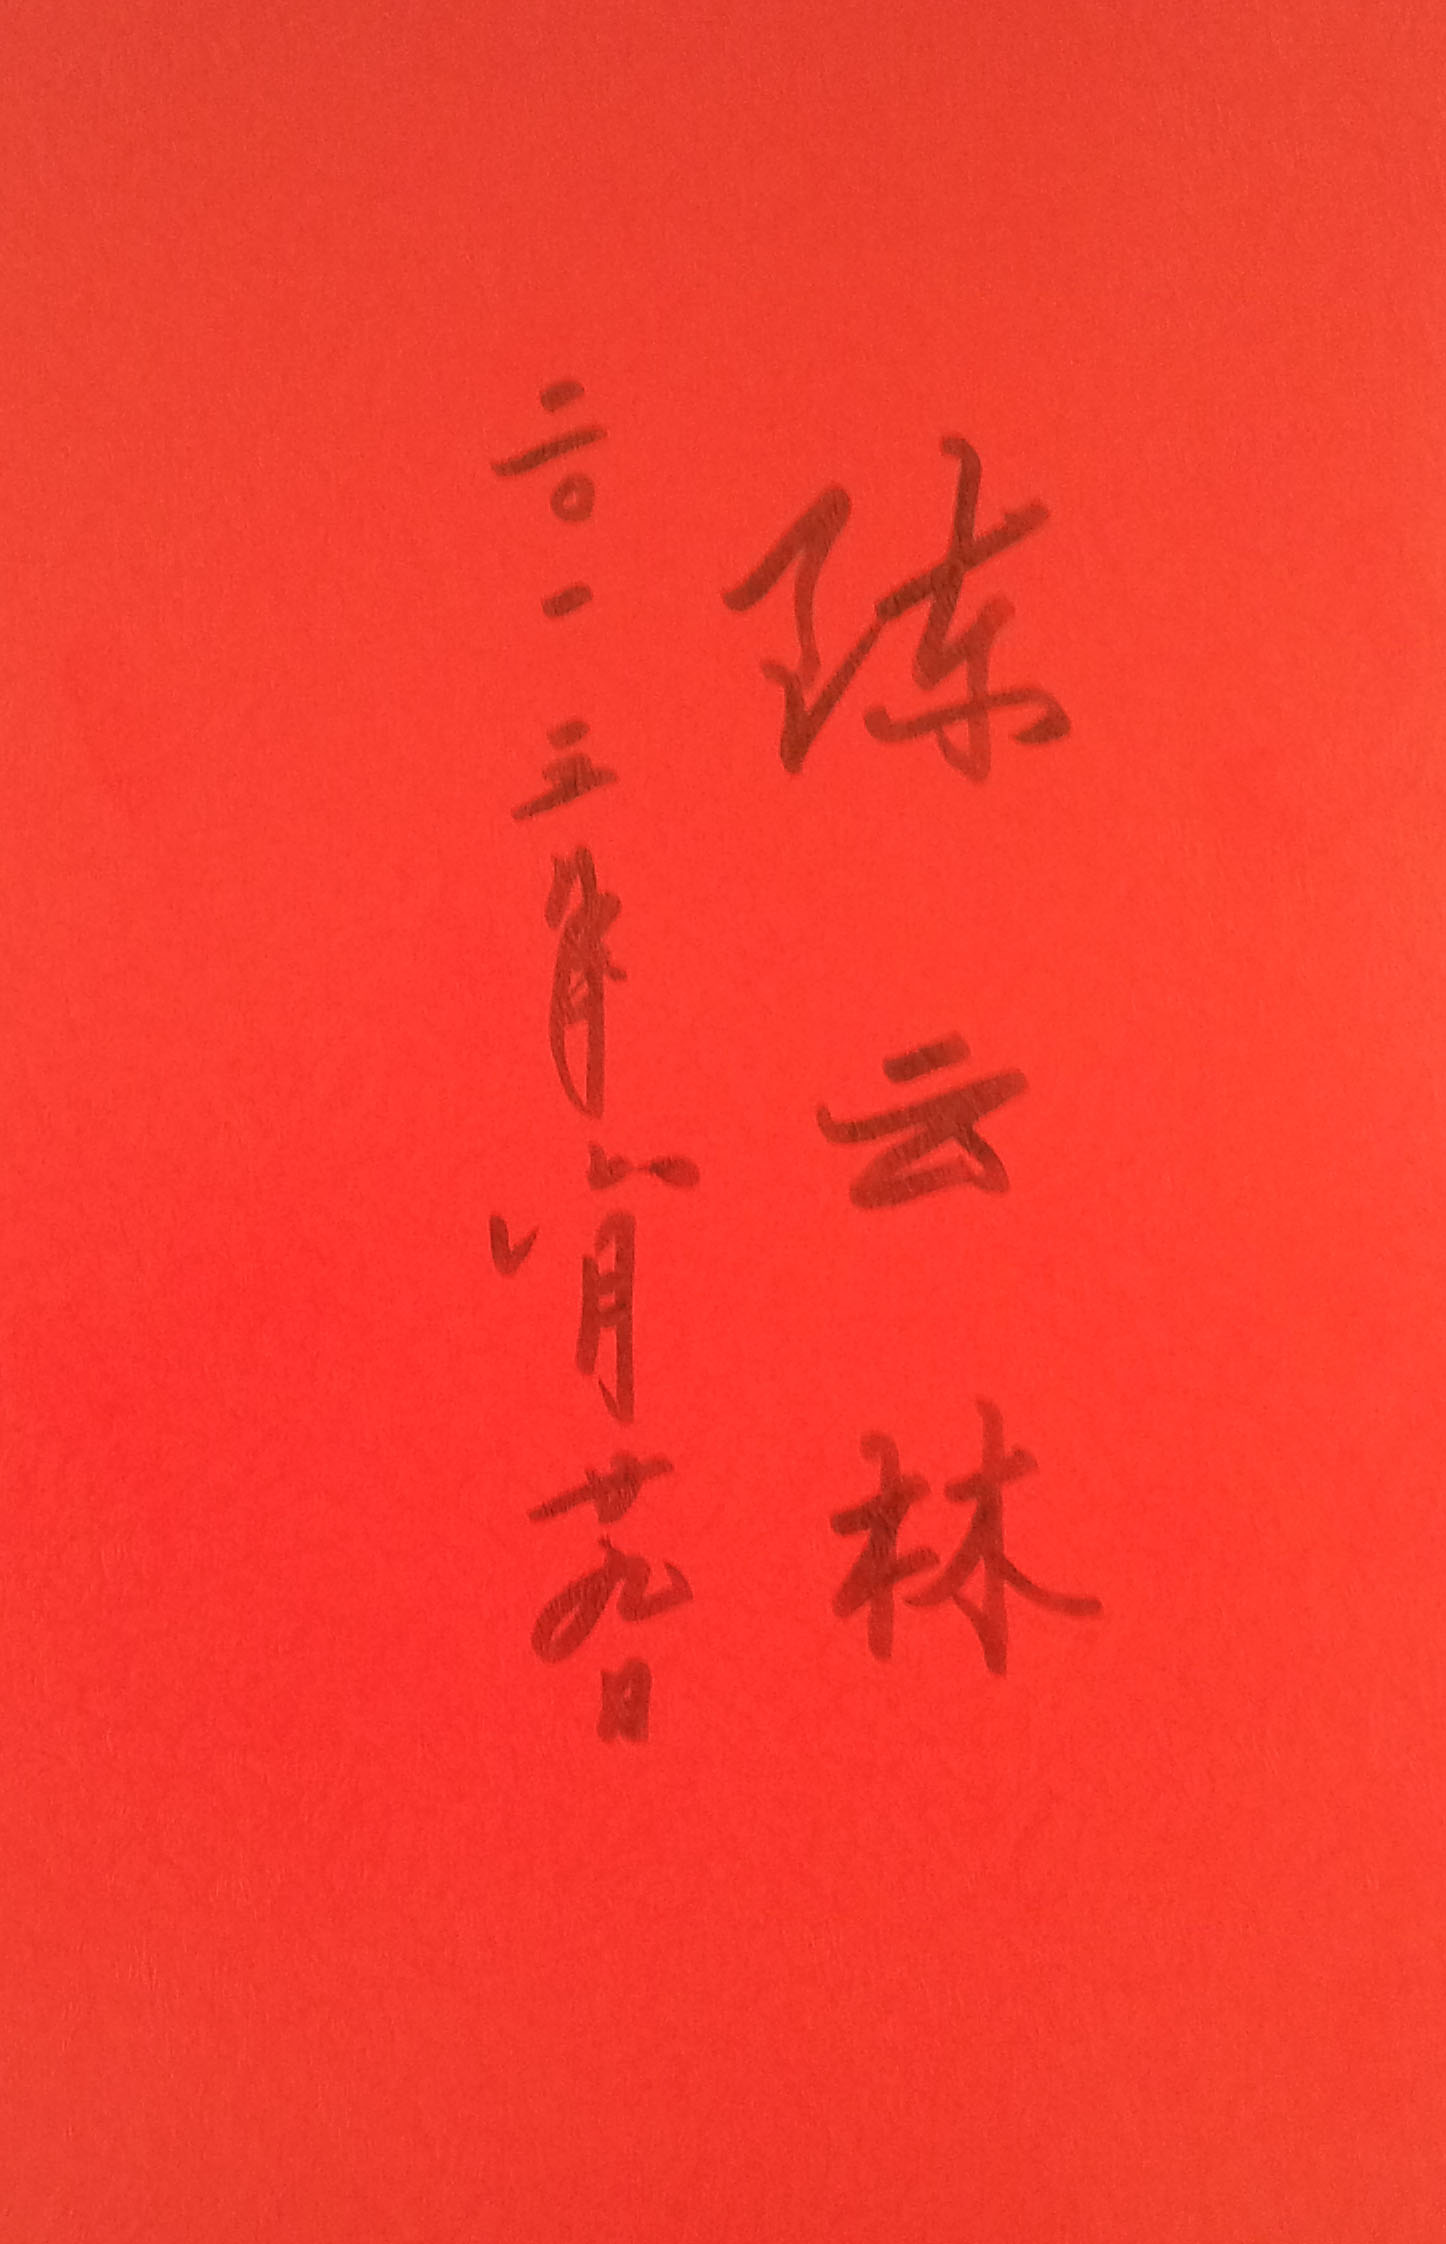 陈云林
二〇一三年六月廿九日